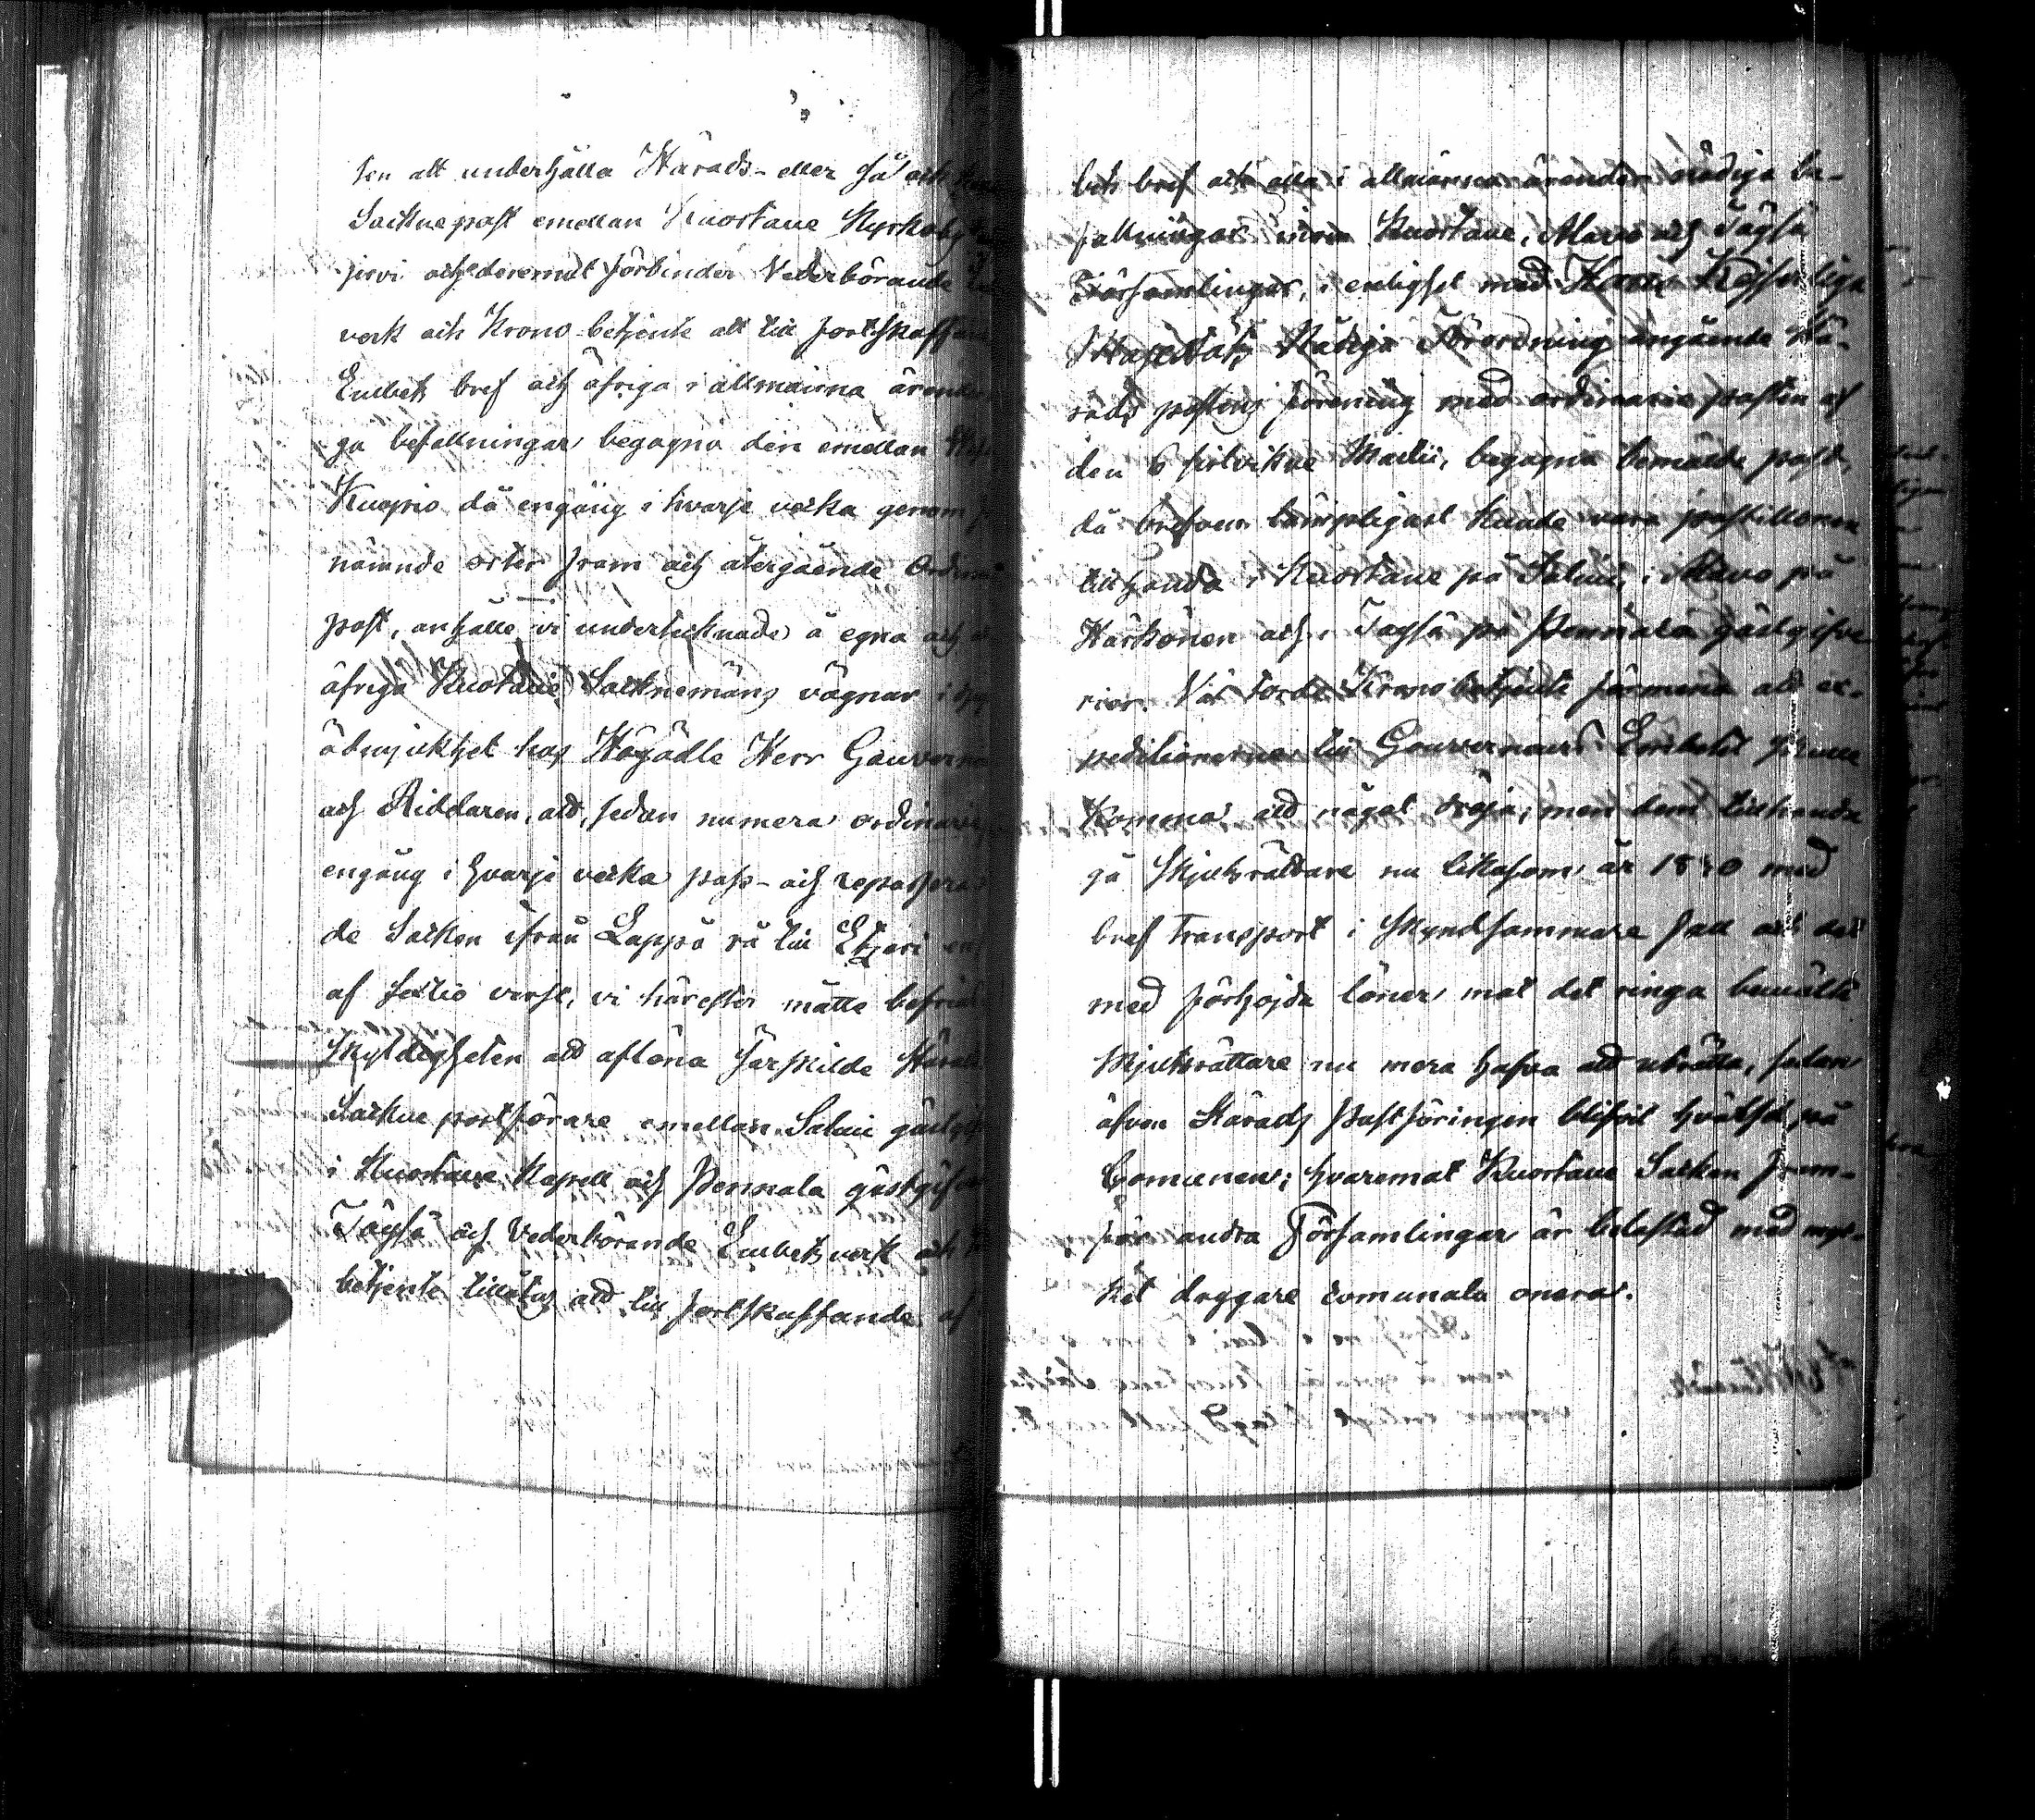 ten att underhålla Härads- eller så och
Sockne post emellan Kuortane Kyrkoby
jervi och deremot förbinder Vederbörande
verk och Krono betjente att till fortskaffan
Embets bref och öfriga i allmänna ärende
ga befallningar begagna den emellan
Kuopio då engång i hvarje vecka genom
nämnde orter fram och återgående Ordina
post, anhålle vi undertecknade å egna och
öfriga Kuortane Socknemäns vägnar i
ödmjukhet hos Högädle Herr Gouverne
och Riddaren, att, sedan numera ordinarie
engång i hvarje vecka pass- och repassera
de Socken ifrån Lappo rå till Etseri
af sextio verst, vi härefter måtte befrias
skyldigheten att aflöna särskilde Härads
Sockne postförare emellan Salmi gästgif
i Kuortane Kapell och Pennala gästgifve
Töysä och Vederbörande Embetsverk och
betjente tillåtas att till fortskaffande af
bets bref och alla i allmänna ärender nådiga be-
fallningar inom Kuortane, Alavo och Töysä
Församlingar, i enlighet med Hans Kejserliga
Majestäts Nådiga Förordning angående Hä-
rads postens förening med ordinarie posten af
den 6 sistvikne Martii, begagna bemälde post,
då brefven lämpligast kunde vara postillonen
tillhanda i Kuortane på Salmi, i Alavo på
Härkönen och i Töysä på Pennala gästgifve
rier. Väl torde Kronobetjente förmena att ex-
peditionerna till Gouverneurs Embetet skulle
komma att något dröja, men dem tillhanda
gå Skjutsrättare nu likasom år 1840 med
bref transport i skyndsammare fall och det
med förhöjda löner, mot det ringa bemälte
Skjutsrättare nu mera hafva att uträtta, sedan
äfven Härads Postföringen blifvit hvälfd på
Comunen; hvaremot Kuortane Socken fram-
för andra Församlingar är belastad med myc-
ket dryggare comunala onera.